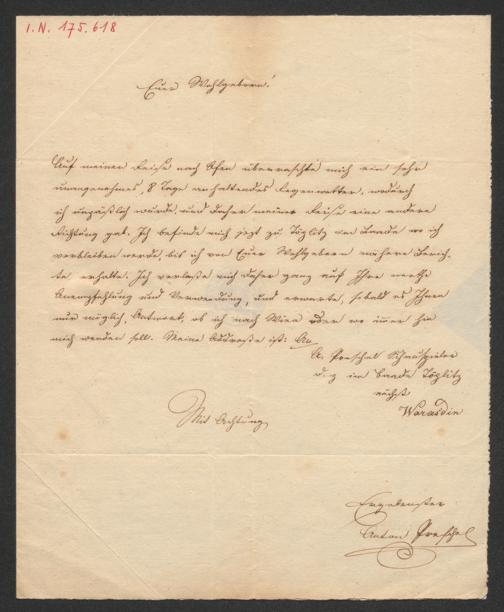 I.N. 175.618
Euer Wohlgeboren!
Auf meiner Reise nach Ofen überraschte mich ein sehr
unangenehmes, 8 Tage anhaltendes Regenwetter, wodurch
ich unpäßlich wurde, und daher meiner Reise eine andere
Richtung gab. Ich befinde mich jezt zu Töplitz im Baade wo ich
verbleiben werde, bis ich von Euer Wohlgeborn nähere Berich-
te erhalte. Ich verlasse mich daher ganz auf Ihre werthe
Anempfehlung und Verwendung, und erwarte, sobald es Ihnen
nur möglich, Antwort, ob ich nach Wien oder wo immer hin
mich wenden soll. Meine Addresse ist: An
A. Preschel Schauspieler
d. z im Baade Töplitz
nächst
Warasdin
Mit Achtung
Ergebenster
Anton Preschel